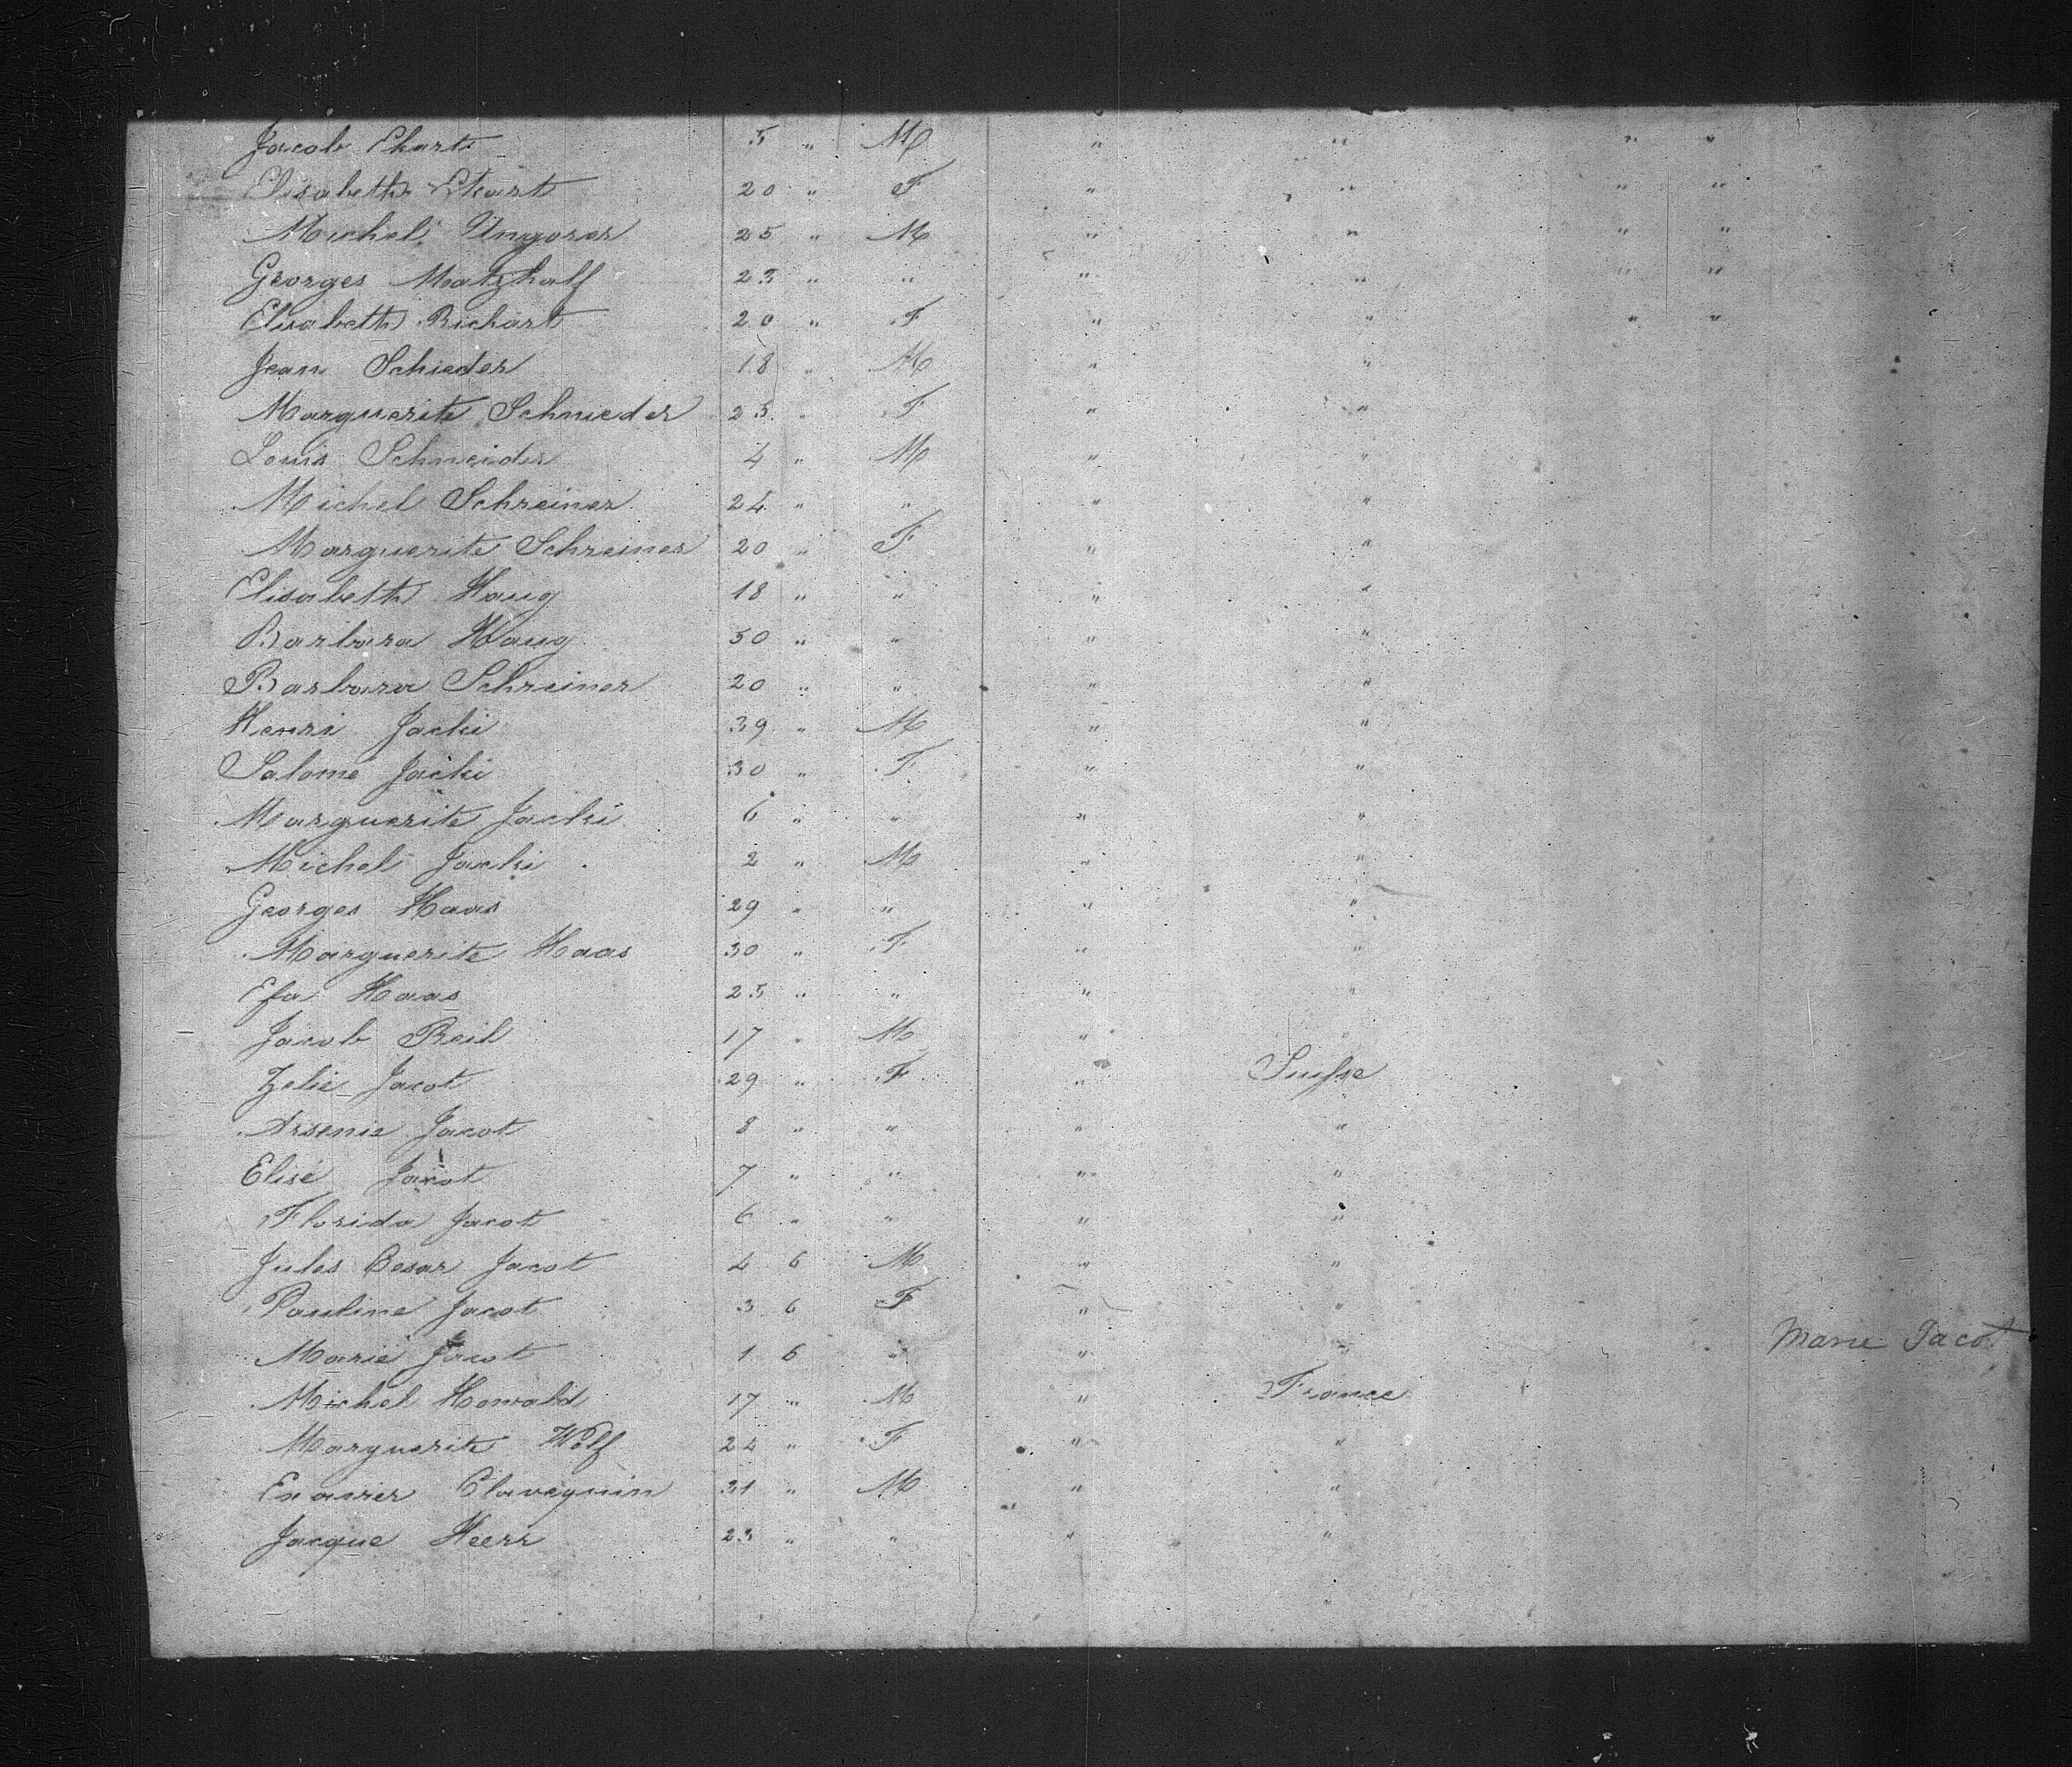 Jacob Ekart 5 " M " " " "
Elisabeth Ekart 20 " F " " " "
Michel Ungerer 25 " M " " " "
Georges Matzhalf 23 " " " " " "
Elisabeth Richart 20 " F " " " "
Jean Schieder 18 " M " "
Marguerite Schnieder 25 " F " "
Louis Schneider 4 " M " "
Michel Schreiner 24 " " " "
Marguerite Schreiner 20 " F " "
Elisabeth Haug 18 " " " "
Barbara Haug 50 " " " "
Barbara Schreiner 20 " " " "
Henri Jacki 39 " M " "
Salome Jacki 30 " F " "
Marguerite Jacki 6 " " " "
Michel Jacki 2 " M " "
Georges Haas 29 " " " "
Marguerite Haas 30 " F " "
Efa Haas 25 " " " "
Jacob Reil 17 " M " "
Zelie Jacot 29 " F " Suisse
Arsenie Jacot 8 " " " "
Elise Jacot 7 " " " "
Florida Jacot 6 " " " "
Jules Cesar Jacot 4 6 M " "
Pauline Jacot 3 6 F " "
Marie Jacot 1 6 " " " Marie Jacot
Michel Howald 17 " M " France
Marguerite Wolf 24 " F " "
Exavier Clavequin 31 " M " "
Jacque Heerr 23 " " " "